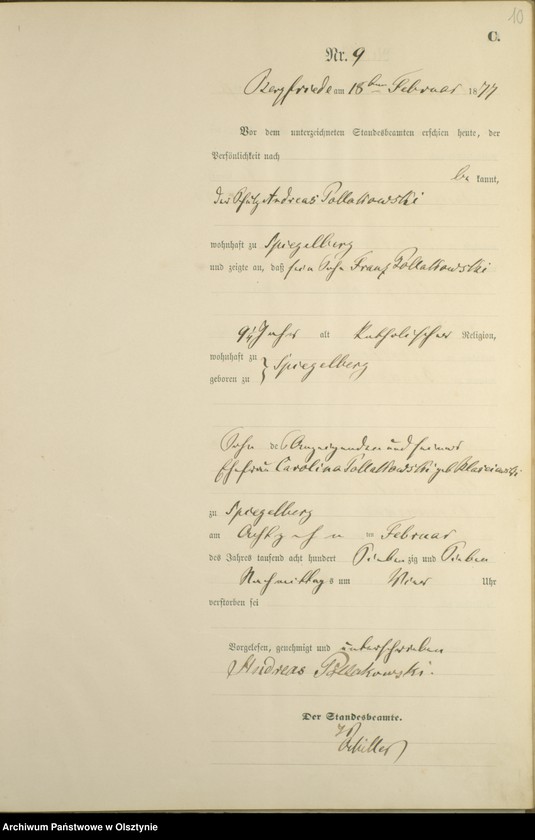 10
C.
Nr. 9
Bergfriede am 18ten Februar 1877
Vor dem unterzeichneten Standesbeamten erschien heute, der
Persönlichkeit nach
be kannt,
der Andreas Pollakowski
wohnhaft zu Spiegelberg
und zeigte an, daß sein Sohn Franz Pollakowski
Jahr alt katholischer Religion,
wohnhaft zu
Spiegelberg
geboren zu
Sohn des Anzeigenden und seiner
Ehefrau Carolina Pollakowski geb.
zu Spiegelberg
am Achtzehn ten Februar
des Jahres tausend acht hundert Sieben zig und Sieben
Nachmittags um Vier Uhr
verstorben sei
Vorgelesen, genehmigt und unterschrieben
Andreas Pollakowski.
Der Standesbeamte.
Archiwum Państwowe w Olsztynie